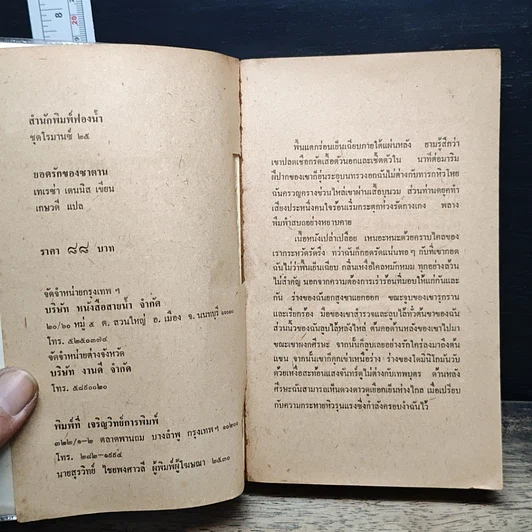 สำนักพิมพ์ฟองน้ำ
ชุดโรมานซ์ ๒๕
ยอดรักของซาตาน
เทเรซ่า เดนนิส เขียน
เกษวดี แปล
ราคา ๘๘ บาท
จัดจำหน่ายกรุงเทพฯ
บริษัท หนังสือสายน้ำ จำกัด
๒๐/๖๐ หมู่ ๕ ต. สวนใหญ่ อ. เมือง จ. นนทบุรี ๑๑๐๐๐
โทร. ๕๒๕๐๓๗๔
จัดจำหน่ายต่างจังหวัด
บริษัท งานดี จำกัด
โทร. ๕๘๙๐๐๒๐
พิมพ์ที่ เจริญวิทย์การพิมพ์
๓๒๒/๑-๒ ตลาดพานถม บางลำพู กรุงเทพฯ ๑๐๒๐๐
โทร. ๒๘๒-๑๙๙๔
นายสุรวิทย์ ไชยพงศาวลี ผู้พิมพ์ผู้โฆษณา ๒๕๓๐
พื้นแตกร่อนเย็นเฉียบภายใต้แผ่นหลัง ยามรู้สึกว่า
เขาปลดเชือกรัดเสื้อตัวนอกและเช็ตตัวใน นาทีต่อมาริม
ฝีปากของเขาก็อุ่นระอุบนทรวงอกฉันไม่ต่างกับทารกหิวโหย
ฉันครวญครางช่วนไหล่เขาผ่านเสื้อบุนวม ส่วนท่านดยุคทำ
เสียงประหนึ่งคนใจร้อนเริ่มกระตุกห่วงรัดกางเกง พลาง
พึมพำสบถอย่างหยาบคาย
เนื้อหนังเปล่าเปลือย เหนอะหนะด้วยคราบไคลของ
เรากระหวัดรัดรึง ทว่าฉันก็กอดรัดแน่นพอๆ กับที่เขากอด
ฉันไม่ว่าพื้นเย็นเฉียบ กลิ่นเหงื่อไคลหมักหมม ทุกอย่างล้วน
ไม่สำคัญ นอกจากความต้องการเร่าร้อนที่มอบให้แก่กันและ
กัน ร่างของฉันยกสูงขาแยกออก ขณะจูบของเขารุกราน
และเรียกร้อง มือของเขาสำรวจและลูบไล้ทั่วต้นขาของฉัน
ส่วนนิ้วของฉันลูบไล้หนังไหล่ ต้นคอด้านหลังของเขาไปมา
ขณะเขาผงกศีรษะ จากนั้นก็ลูบเลยอย่างรักใคร่ลงมาถึงต้น
แขน จากนั้นเขาก็คุกเข่าเหนือร่าง ร่างของโดมินิกมันวับ
ด้วยเหงื่อสะท้อนแสงจันทร์ดูไม่ต่างกับเทพบุตร ด้านหลัง
ศีรษะฉันสามารถเห็นดวงดาวดูเยือกเย็นห่างไกล เมื่อเปรียบ
กับความกระหายหิวรุนแรงซึ่งกำลังครอบงำฉันไว้